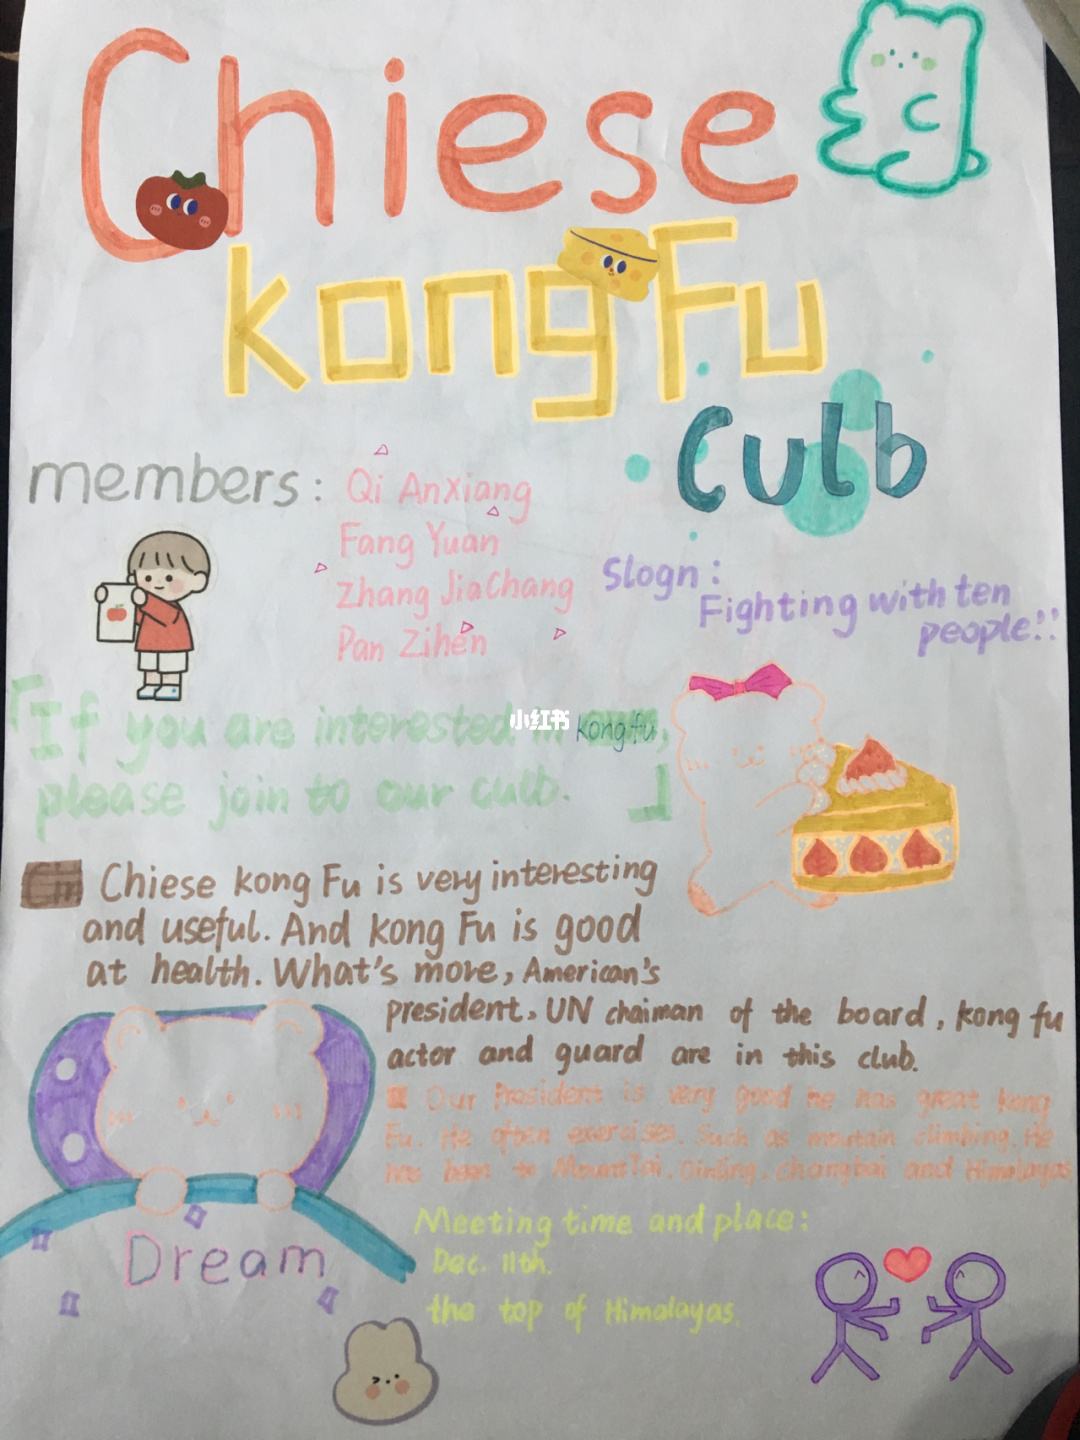 Chiese
kong Fu
Culb
members:
Qi AnXiang
Fang Yuan
Zhang JiaChang
Pan Zihen
Slogn:
Fighting with ten
people!!
「If you are interested in kong fu,
please join to our culb. 」
Chiese kong Fu is very interesting
and useful. And kong Fu is good
at health. What's more, American's
president, UN chaiman of the board, kong fu
actor and guard are in this club.
Our President is very good he has great kong
Fu. He often exercises. Such as moutain climbing. He
has been to Mount Tai, Qinling, changbai and Himalayas
Meeting time and place:
Dec. 11th.
the top of Himalayas.
Dream
小红书